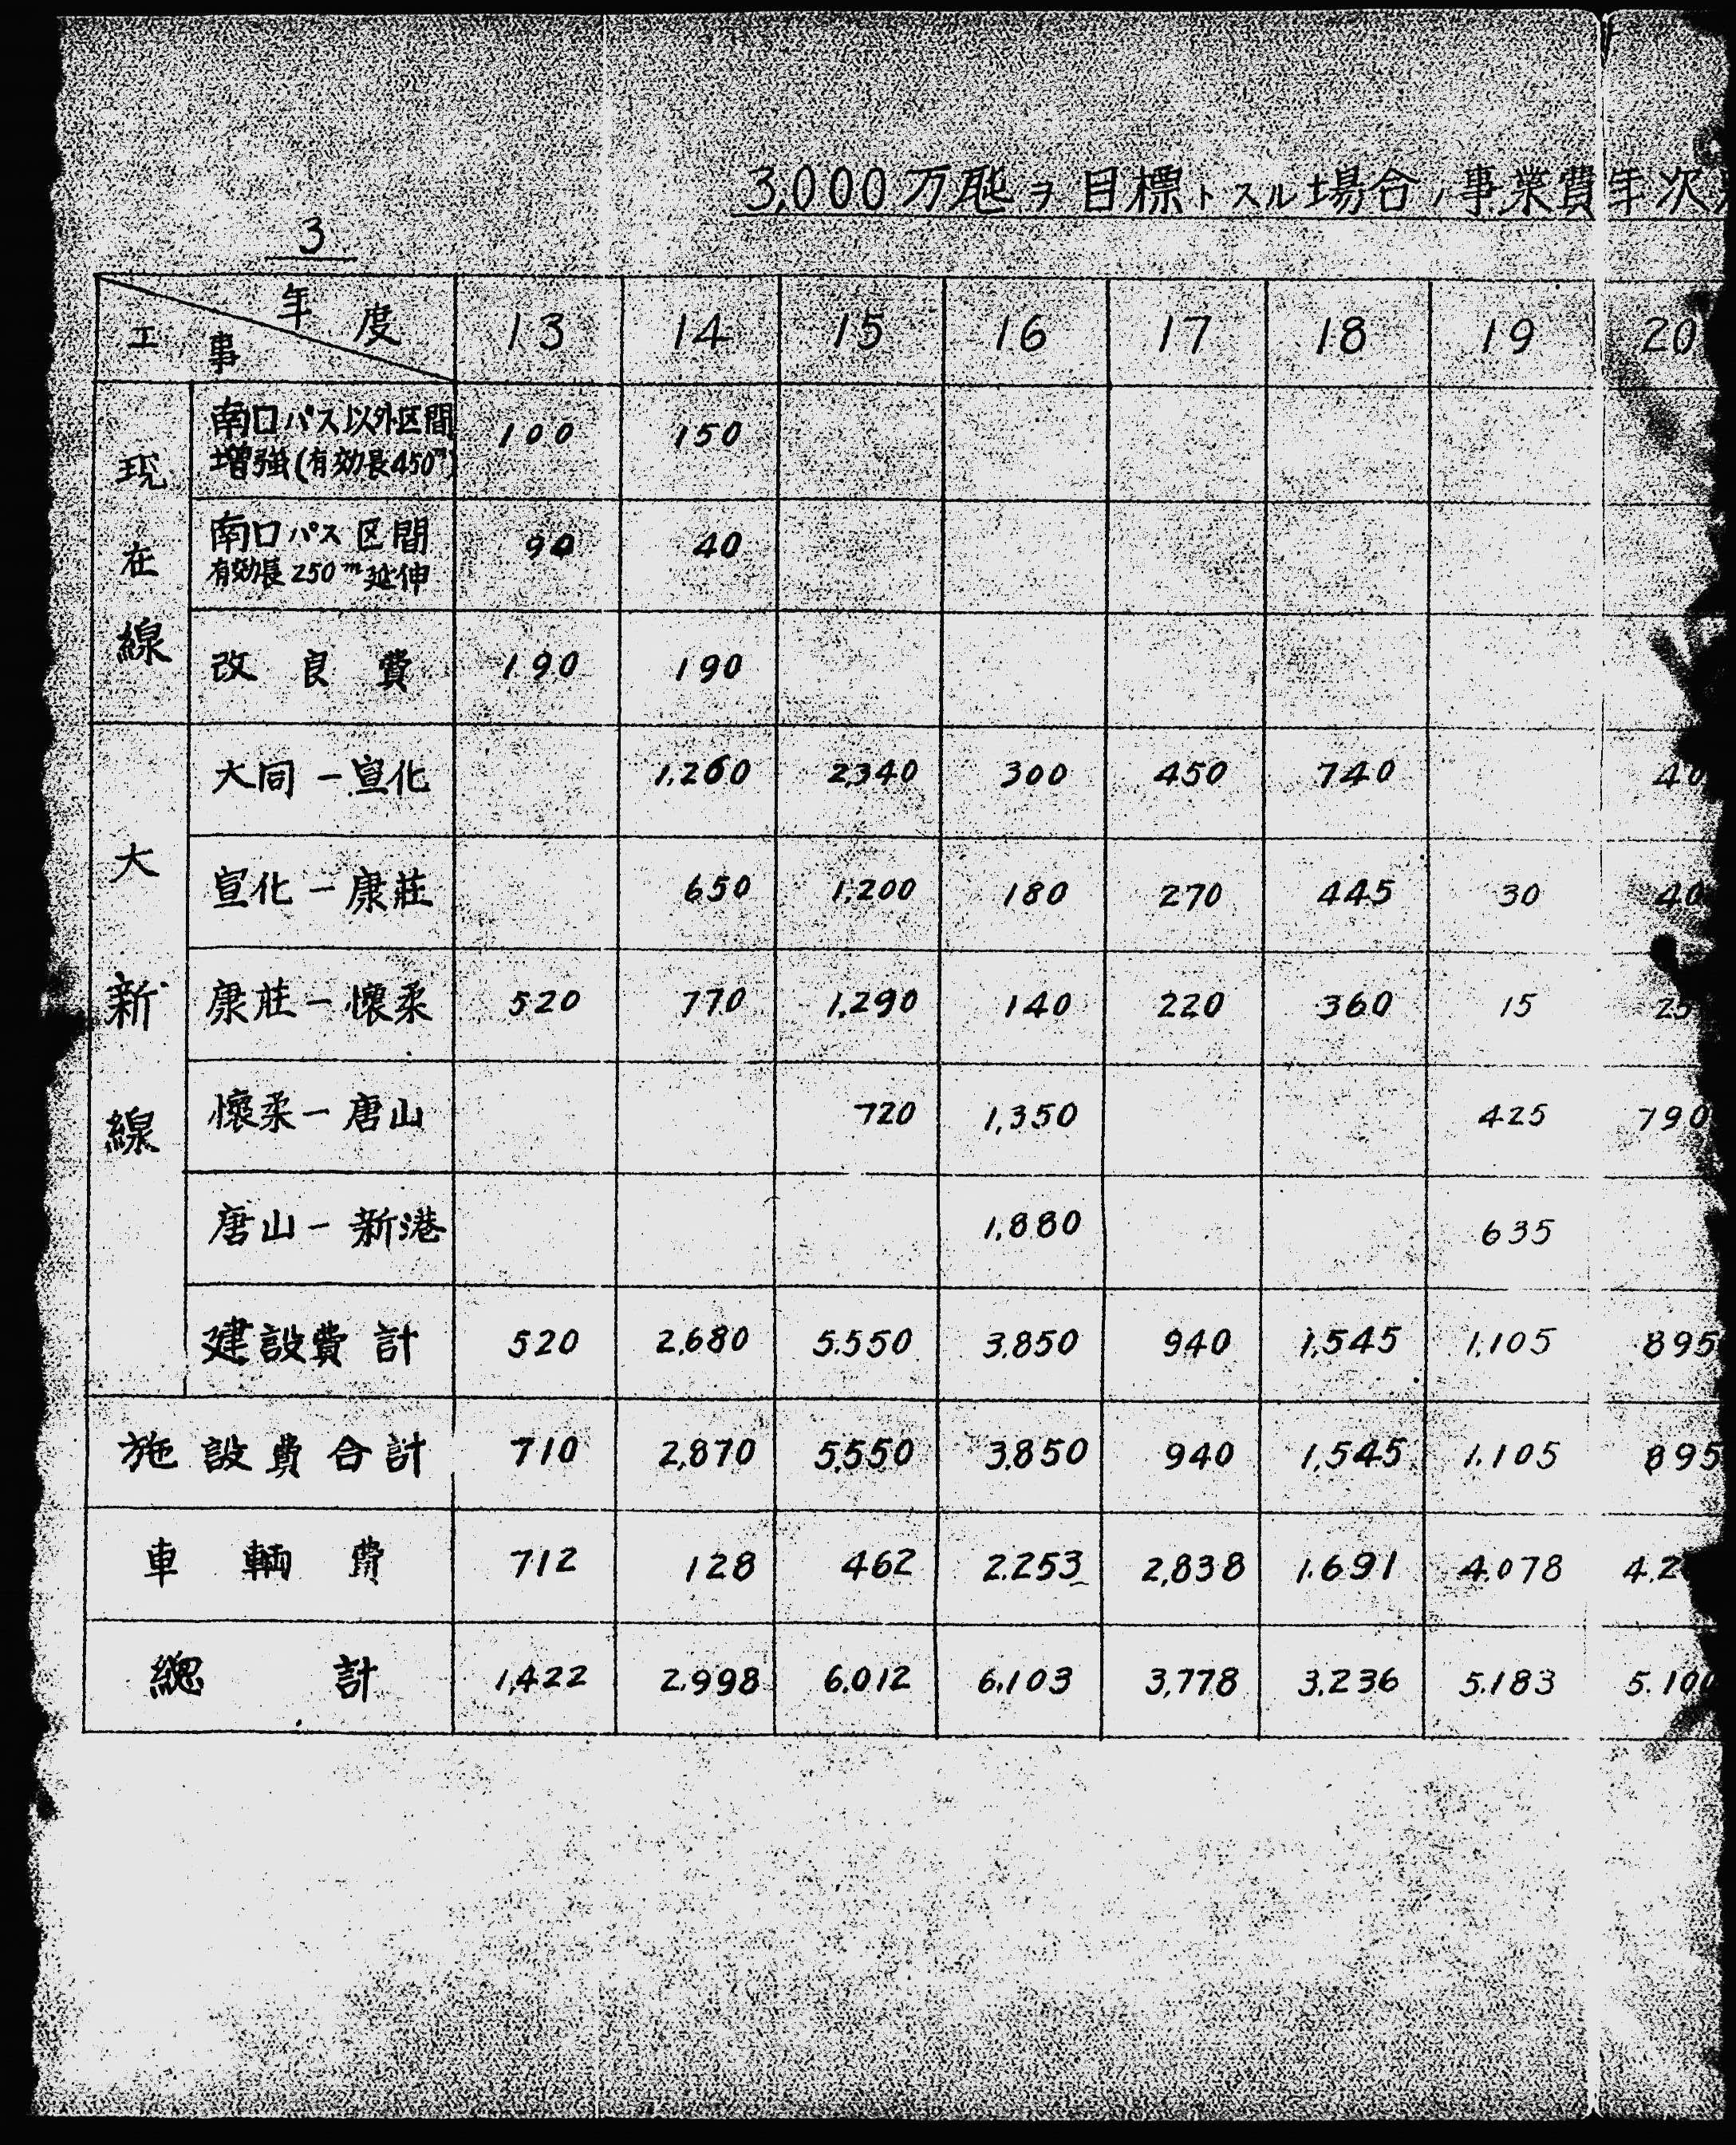 3,000万瓲ヲ目標トスル場合ノ事業費年次
3
工事 年度 13 14 15 16 17 18 19 20
現在線
南口パス以外区間 増強(有効長450m) 100 150
南口パス区間 有効長250m延伸 90 40
改良費 190 190
大新線
大同-宣化 1,260 2,340 300 450 740 40
宣化-康莊 650 1,200 180 270 445 30 40
康莊-懷柔 520 770 1,290 140 220 360 15 25
懷柔-唐山 720 1,350 425 790
唐山-新港 1,880 635
建設費計 520 2,680 5.550 3,850 940 1,545 1,105 895
施設費合計 710 2,870 5,550 3,850 940 1,545 1.105 895
車輌費 712 128 462 2.253 2,838 1.691 4.078
總計 1,422 2.998 6.012 6.103 3,778 3.236 5.183 5.100